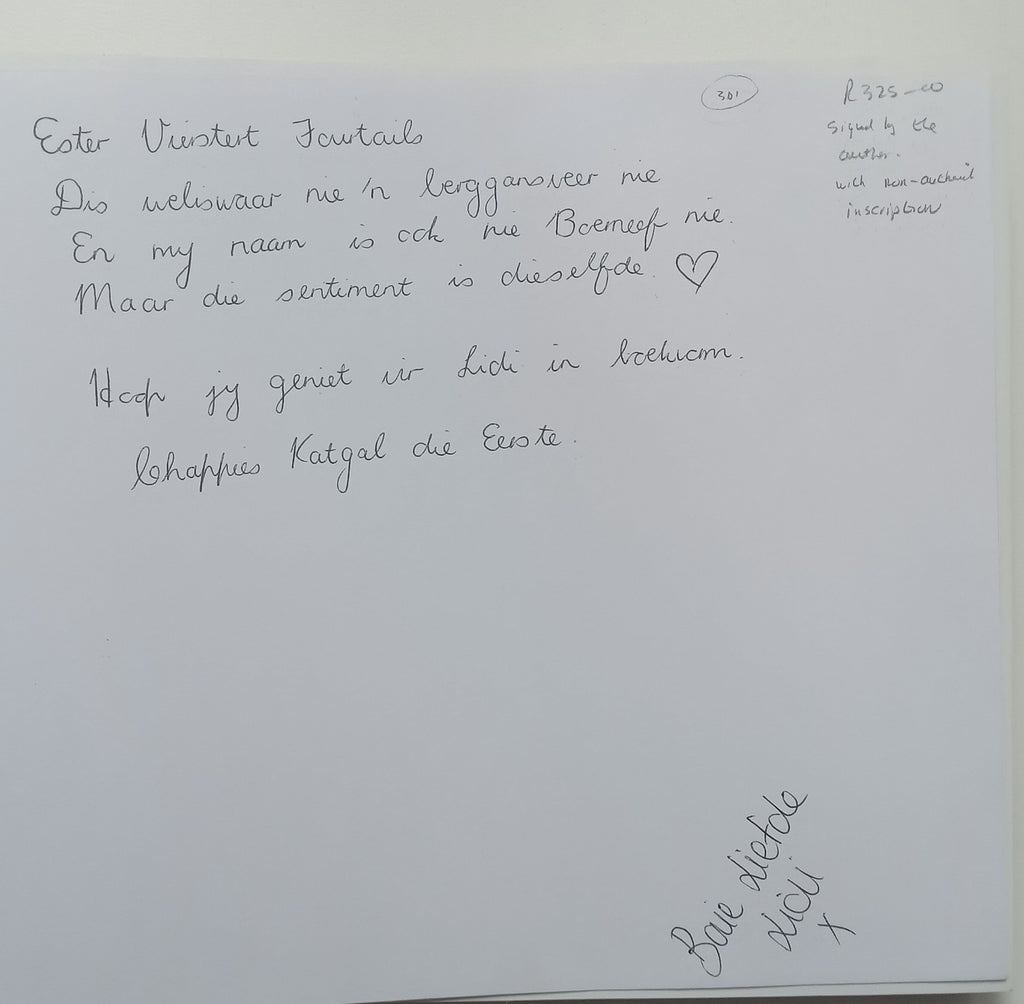 301
R325-00
Signed by the
author.
with non-authorial
inscription
Ester Viertert Fowtails
Dis weliswaar nie 'n berggansveer nie
En my naam is ook nie Boerneef nie.
Maar die sentiment is dieselfde.
Hoop jy geniet vir Lidi in boekvorm.
Chappies Katgal die Eerste.
Baie Liefde
Lidi
x